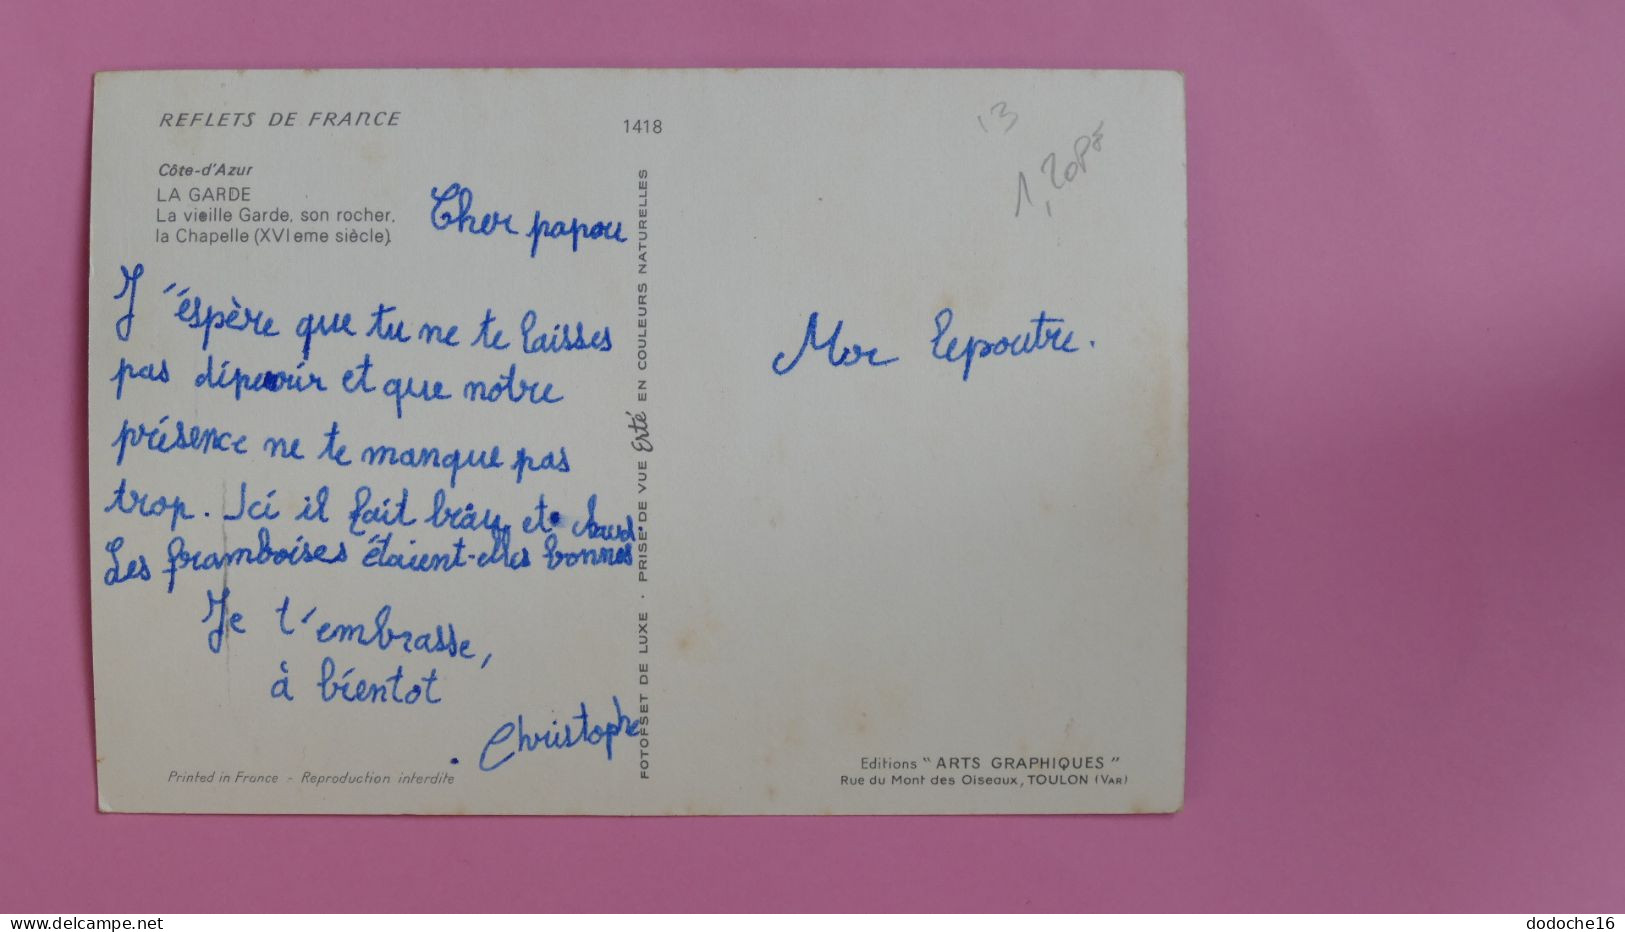 REFLETS DE FRANCE
1418
Côte-d'Azur
LA GARDE
La vieille Garde, son rocher,
la Chapelle (XVIeme siècle).
Cher papou
J'éspère que tu ne te laisses
pas dipérir et que notre
présence ne te manque pas
trop. Ici il fait brau et chaud.
Les framboises étaient-elles bonnes
Je t'embrasse,
à bientot
Christophe
Printed in France - Reproduction interdite
FOTOFSET DE LUXE · PRISE DE VUE Erté EN COULEURS NATURELLES
13
Mor Lepoutre.
Editions "ARTS GRAPHIQUES"
Rue du Mont des Oiseaux, TOULON (VAR)
delcampe.net
dodoche16